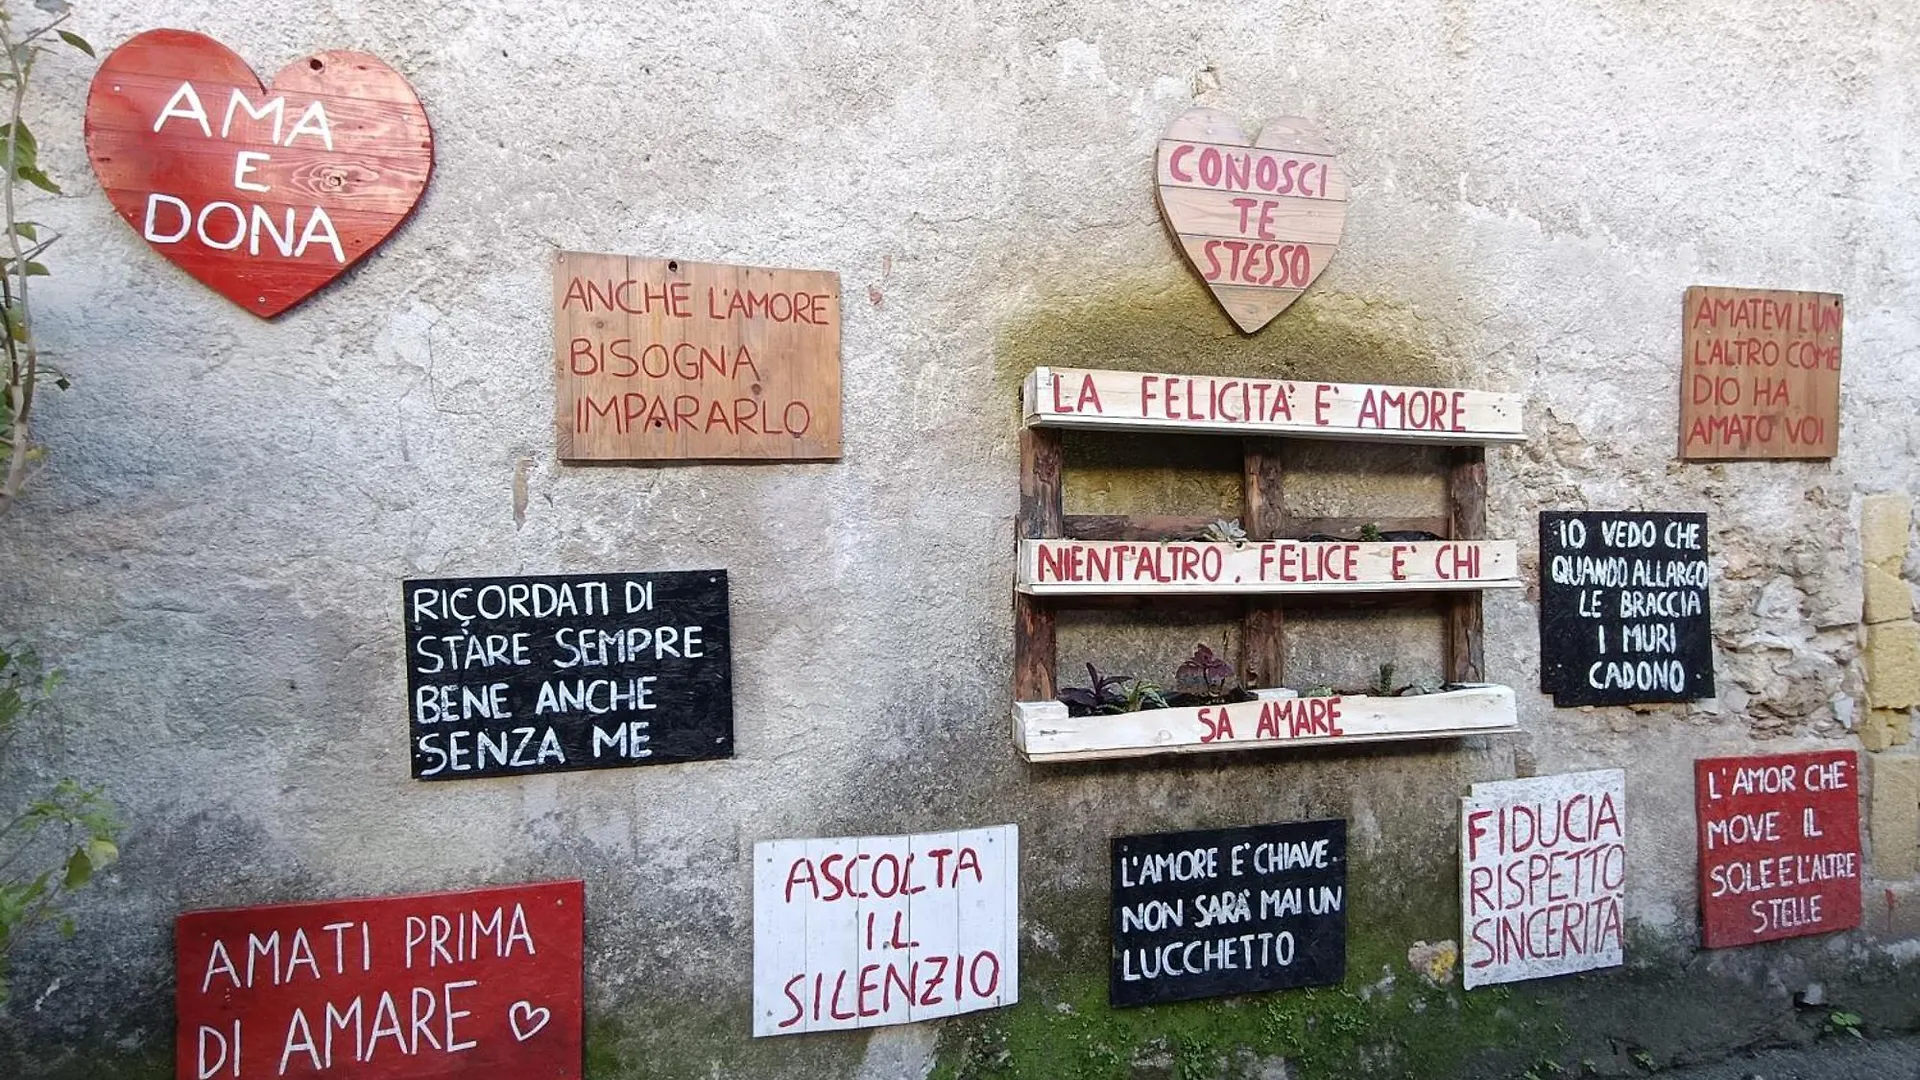 AMA
E
DONA
CONOSCI
TE
STESSO
ANCHE L'AMORE
BISOGNA
IMPARARLO
AMATEVI L'UN
L'ALTRO COME
DIO HA
AMATO VOI
LA FELICITA' E' AMORE
NIENT'ALTRO. FELICE E' CHI
SA AMARE
IO VEDO CHE
QUANDO ALLARGO
LE BRACCIA
I MURI
CADONO
RICORDATI DI
STARE SEMPRE
BENE ANCHE
SENZA ME
L'AMOR CHE
MOVE IL
SOLE E L'ALTRE
STELLE
FIDUCIA
RISPETTO
SINCERITA'
L'AMORE E' CHIAVE
NON SARA' MAI UN
LUCCHETTO
ASCOLTA
IL
SILENZIO
AMATI PRIMA
DI AMARE